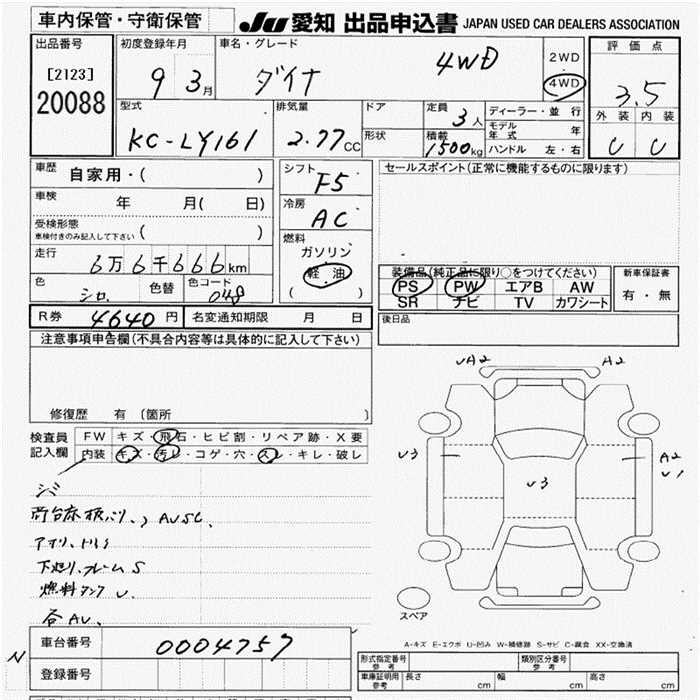 車内保管・守衛保管
JU 愛知 出品申込書 JAPAN USED CAR DEALERS ASSOCIATION
出品番号
[2123]
20088
初度登録年月
9 3月
車名・グレード
ダイナ 4WD
2WD
4WD
評価点
3.5
外装 内装
U U
型式
KC-LY161
排気量
2.77CC
ドア
形状
定員
3人
積載
1500kg
ディーラー・並行
モデル年式 年
ハンドル 左・右
車歴
自家用・( )
車検
年 月( 日)
受検形態
車検付きのみ記入して下さい ( )
走行
6万6千666km
色
シロ
色替
色コード
048
シフト
F5
冷房
AC
燃料
ガソリン
軽油
( )
セールスポイント(正常に機能するものに限ります)
装備品(純正品に限り○をつけてください)
PS PW エアB AW
SR ナビ TV カワシート
新車保証書
有・無
R券 4640円 名変通知期限 月 日
後日品
注意事項申告欄(不具合内容等は具体的に記入して下さい)
修復歴 有 (箇所 )
検査員
記入欄
FW キズ・飛石・ヒビ割・リペア跡・X要
内装 キズ・汚レ・コゲ・穴・スレ・キレ・破レ
シミ
荷台床板バリ、AUSC
アオリ、トリイ
下廻り、フレームS
燃料タンクU
各AU
UA2 A2
U3
U3
A2
U1
スペア
A-キズ E-エクボ U-凹み W-補修跡 S-サビ C-腐食 XX-交換済
車台番号
0004757
N
登録番号
形式指定番号
参考
類別区分番号
参考
車庫証明用
参考
長さ cm 幅 cm 高さ cm